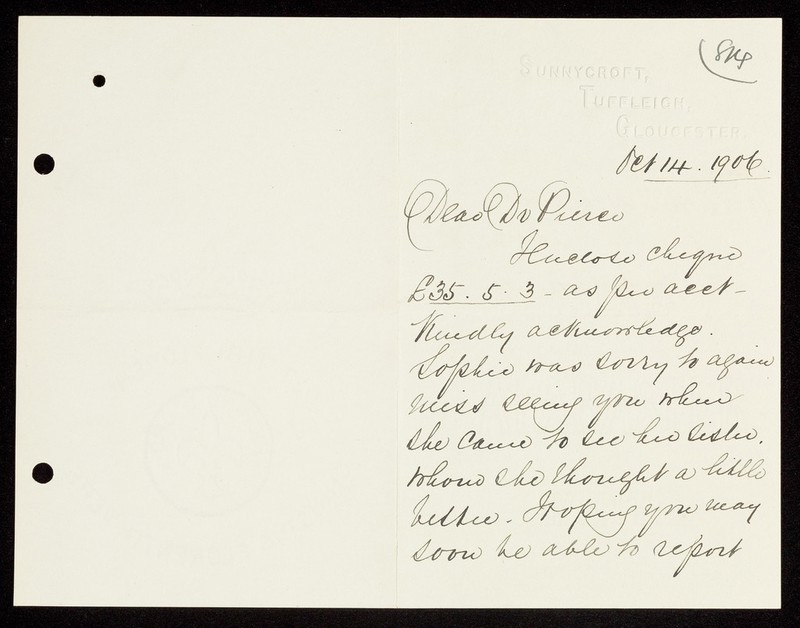 SUNNYCROFT,
TUFFLEIGH,
GLOUCESTER.
Oct 14. 1906.
Dear Dr Pierce
Enclose cheque
£35. 5. 3 - as per acct -
Kindly acknowledge.
Sophie was sorry to again
miss seeing you when
she came to see her sister.
whom she thought a little
better. Hoping you may
soon be able to report